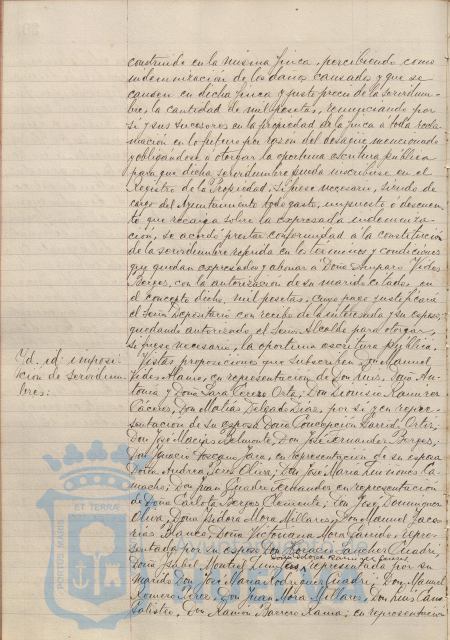 construido en la misma finca, percibiendo como
indemnización de los daños causados y que se
causen en dicha finca y justo precio de la servidum-
bre, la cantidad de mil pesetas, renunciando por
si y sus sucesores en la propiedad de la finca á toda recla-
mación en lo futuro por razon del desagüe mencionado
y obligandose á otorgar la oportuna escritura pública
para que dicha servidumbre pueda inscribirse en el
Registro de la Propiedad, si fuese necesario, siendo de
cargo del Ayuntamiento todo gasto, impuesto ó descuen-
to que recaiga sobre la expresada indemniza-
ción, se acordó prestar conformidad á la constitución
de la servidumbre referida en los términos y condiciones
que quedan expresados y abonar á Doña Amparo Vides
Borges, con la autorización de su marido citado, en
el concepto dicho, mil pesetas, cuyo pago justificará
el Señor Depositario con recibo de la interesada y su esposo,
quedando autorizado el Señor Alcalde para otorgar,
si fuese necesario, la oportuna escritura pública.
Id. id. imposi-
ción de servidum-
bres:
Vistas proposiciones que subscriben Don Manuel
Vides, en representación de Don Luis, Don An-
tonio y Doña Sara Cerezo Orta; Don Dionisio Ramirez
Cáceres, Don Matías Delgado, por si y en repre-
sentación de su esposa Doña Concepción Garrido Ortiz;
Don José Macías Belmonte, Don José Fernandez Borges;
Don Ignacio Toscano Jara, en representación de su esposa
Doña Andrea Oliva; Don José María Ca-
macho; Don Juan Fernandez en representación
de Doña Carlota Borges Clemente; Don José Dominguez
Oliva, Doña Isidora Mora Millares, Don Manuel
Blanco, Doña Victoriana Mora repre-
sentada por su esposo Don Sanchez
Doña Isabel Montiel representada por su
marido Don José Maria Rodriguez; Don Manuel
Romero Perez, Don Juan Mora Millares, Don Luis Cano
Calistro, Don Ramón Barrero; en representación
ET TERRAE
PORTUS MARIS